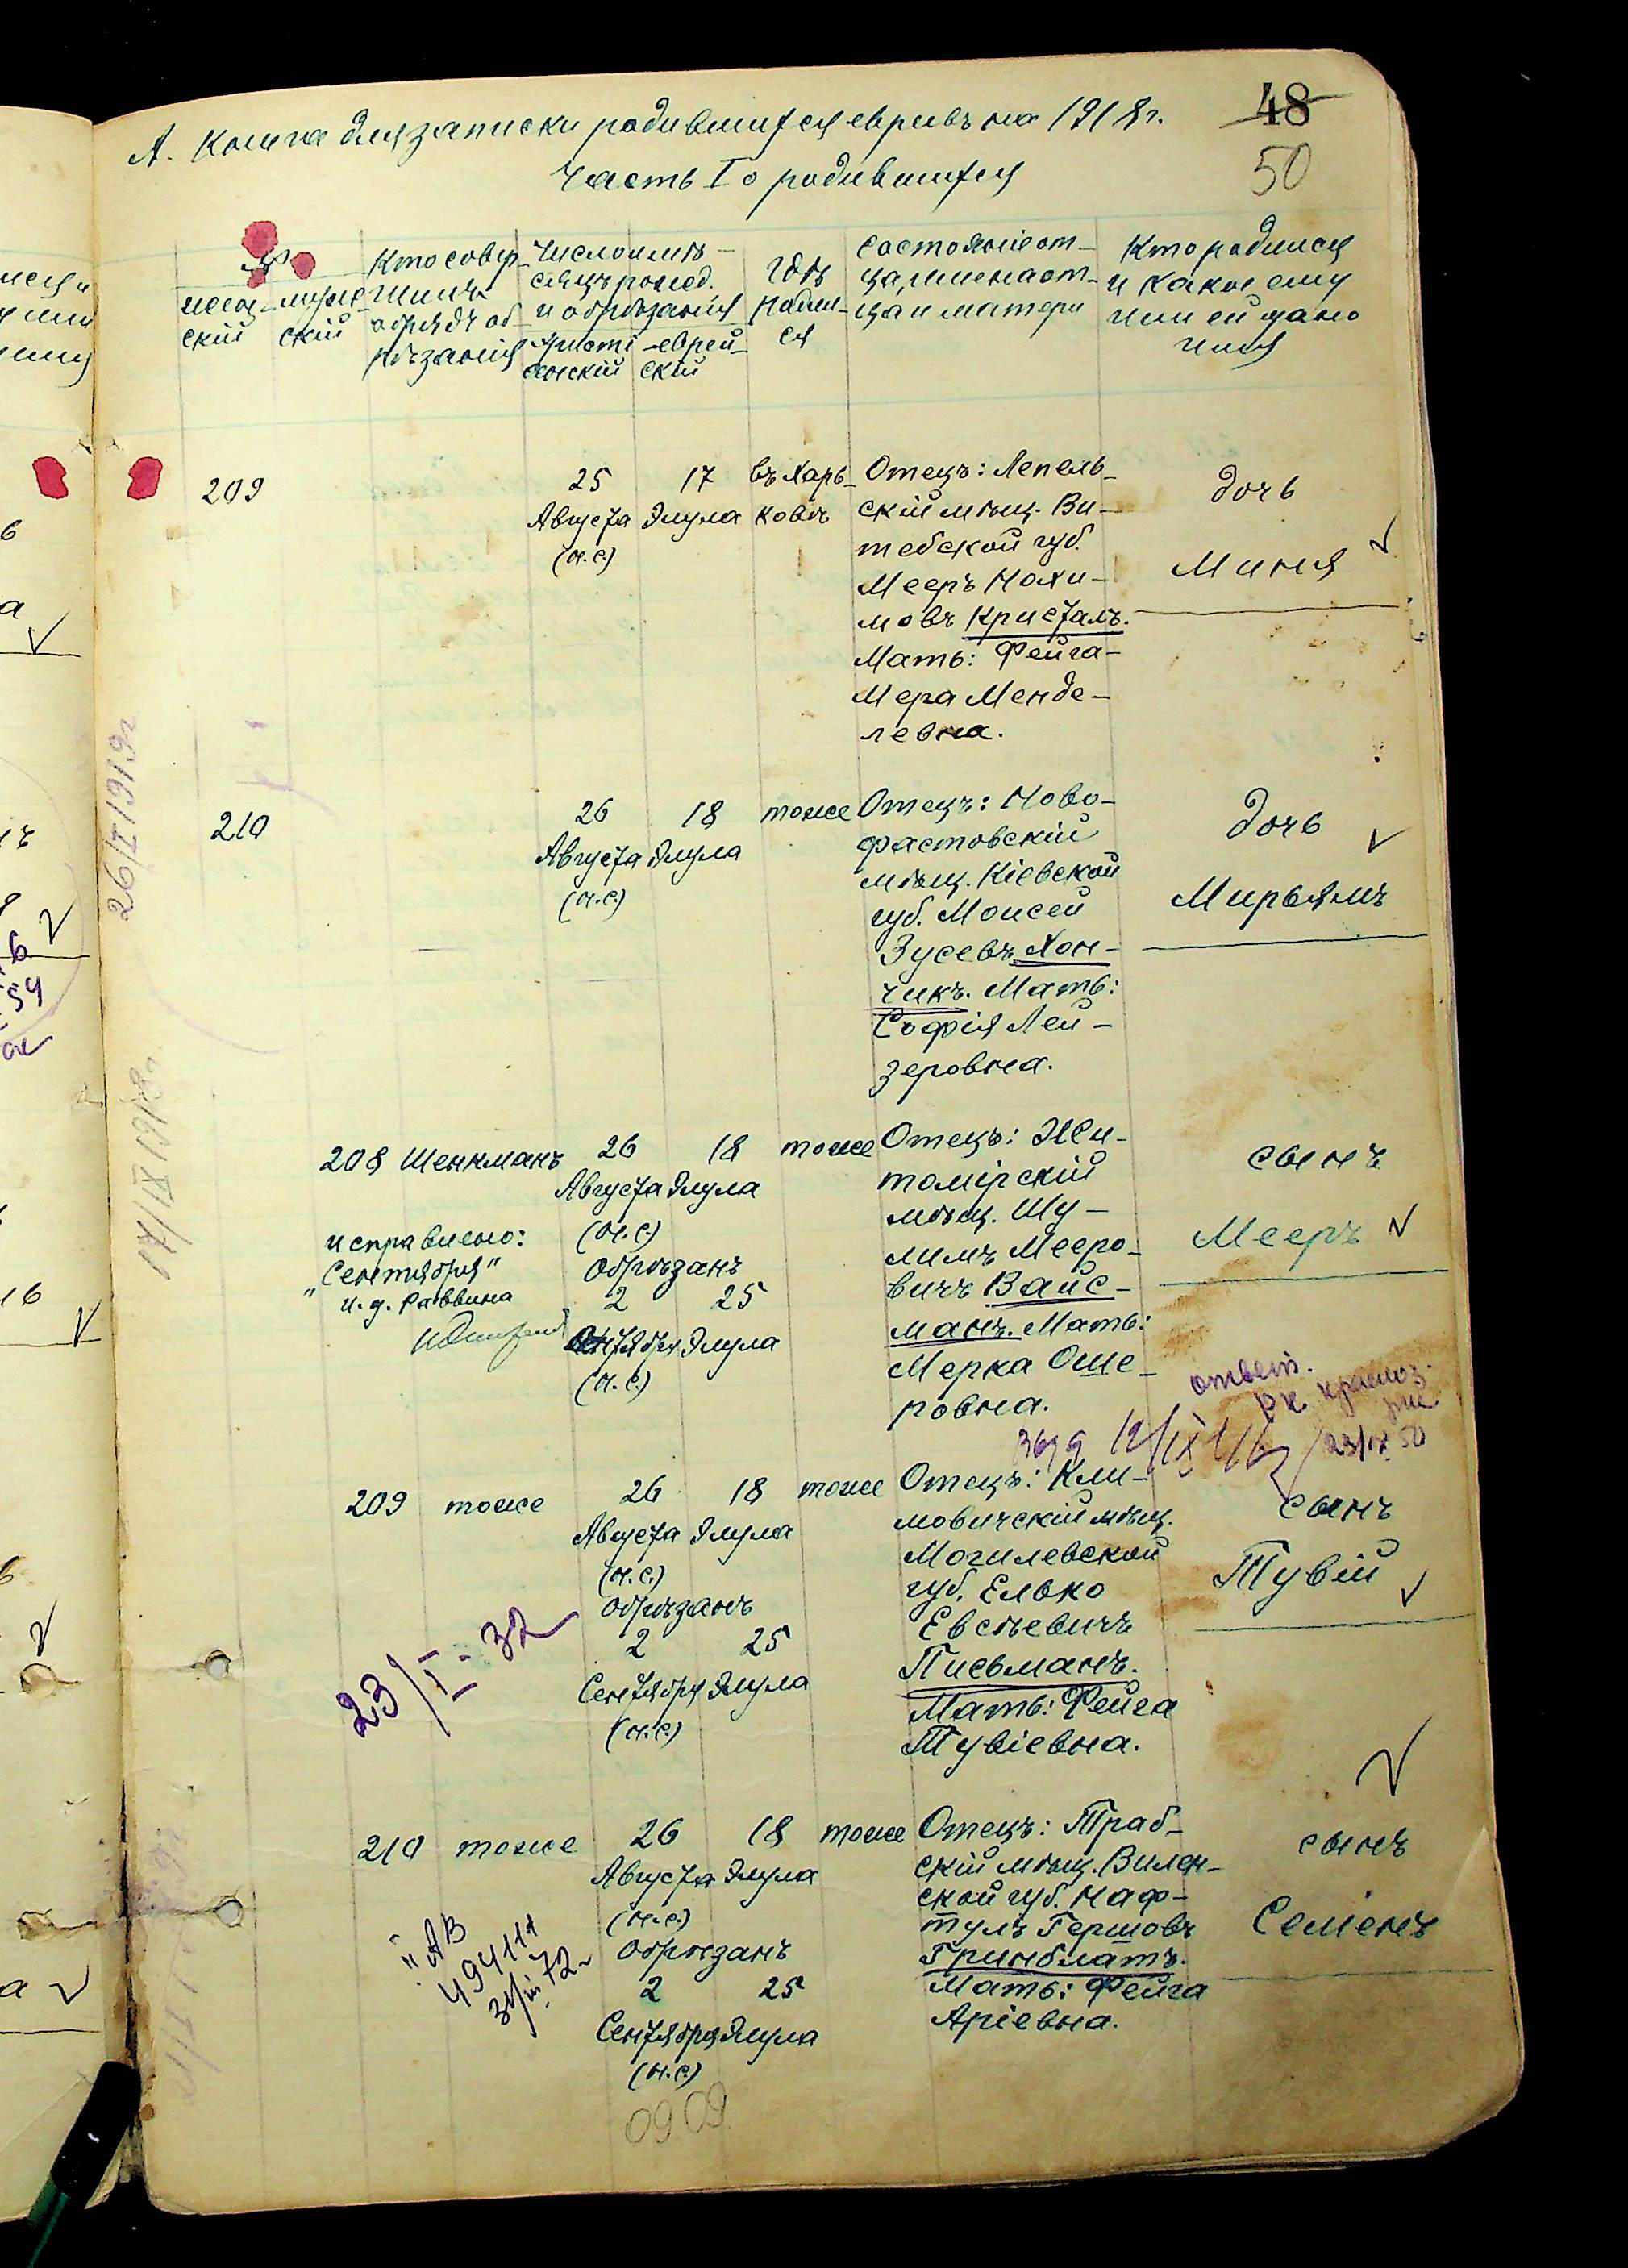 48
50
А. Книга для записки родившихся евреевъ на 1918 г.
Часть I о родившихся
№
женскій
мужскій
Кто совер-
шилъ
обрядъ об
рѣзанія
Число и мѣ-
сяцъ рожд.
и обрѣзанія
Христі
анскій
еврей-
скій
Гдѣ
родил-
ся
Состояніе от-
ца, имена от-
ца и матери
Кто родился
и какое ему
или ей дано
имя
209
25
Августа
(н.с.)
17
Элула
въ Харь-
ковѣ
Отецъ: Лепель-
скій мѣщ. Ви-
тебской губ.
Мееръ Нохи-
мовъ Кристалъ.
Мать: Фейга-
Мера Менде-
левна.
дочь
Миня
210
26
Августа
(н.с.)
18
Элула
тоже
Отецъ: Ново-
фастовскій
мѣщ. Кіевской
губ. Моисей
Зусевъ Хон-
чикъ. Мать:
Софія Лей-
зеровна.
дочь
Мирьямъ
208
Шенкманъ
26
Августа
(н.с.)
18
Элула
обрѣзанъ
2
Сентября
(н.с.)
25
Элула
тоже
Отецъ: Жи-
томірскій
мѣщ. Шу-
лимъ Мееро-
вичъ Вайс-
манъ. Мать:
Мерка Оше-
ровна.
сынъ
Мееръ
исправлено:
"Сентября"
и. д. Раввина
отвѣт.
23/IX 50
209
тоже
26
Августа
(н.с.)
18
Элула
обрѣзанъ
2
Сентября
(н.с.)
25
Элула
тоже
Отецъ: Кли-
мовичскій мѣщ.
Могилевской
губ. Елько
Евсѣевичъ
Письманъ.
Мать: Фейга
Тувіевна.
сынъ
Тувій
23/I-32
210
тоже
26
Августа
(н.с.)
18
Элула
обрѣзанъ
2
Сентября
(н.с.)
25
Элула
тоже
Отецъ: Траб-
скій мѣщ. Вилен-
ской губ. Наф-
тулъ Гершовъ
Гринблатъ.
Мать: Фейга
Аріевна.
сынъ
Семенъ
"АВ
494111
31/III 72
0909
26/I 1919 г
17/IX 1918 г